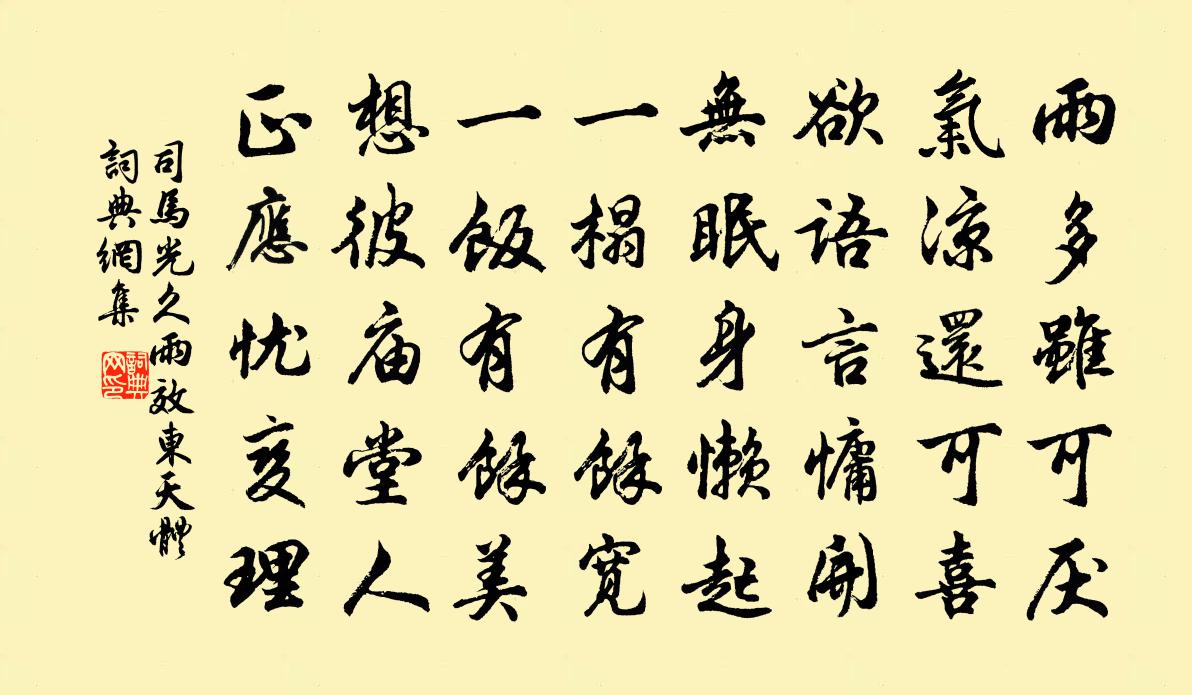 雨多雖可厌
氣涼還可喜
欲語言慵開
無眠身懶起
一榻有餘寬
一飯有餘美
想彼庙堂人
正應忧变理
司馬光久雨效東天體
詞典網集
詞典网印